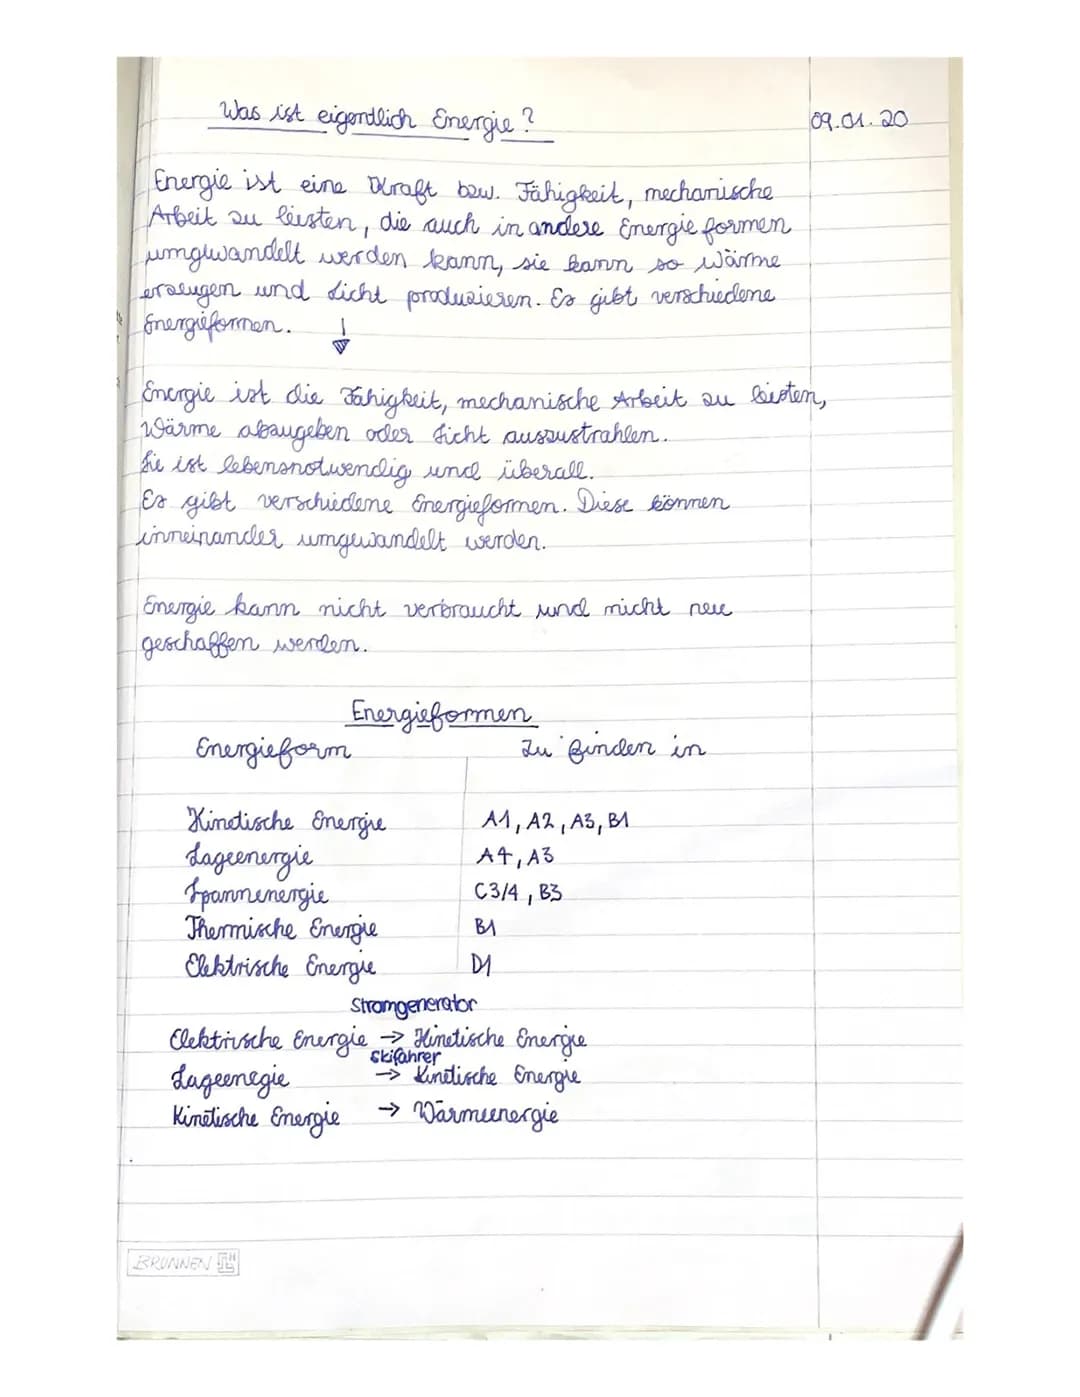 Was ist eigendlich Energie? 09.01.20
Energie ist eine Kraft bzw. Fähigkeit, mechanische
Arbeit zu leisten, die auch in andere Energieformen
umgewandelt werden kann, sie kann so Wärme
erzeugen und Licht produzieren. Es gibt verschiedene
Energieformen.
Energie ist die Fähigkeit, mechanische Arbeit zu leisten,
Wärme abzugeben oder Licht auszustrahlen.
Sie ist lebensnotwendig und überall.
Es gibt verschiedene Energieformen. Diese können
inneinander umgewandelt werden.
Energie kann nicht verbraucht und nicht neu
geschaffen werden.
Energieformen
Energieform Zu finden in
Kinetische Energie A1, A2, A3, B1
Lageenergie A4, A3
Spannenergie C3/4, B3
Thermische Energie B1
Elektrische Energie D1
Stromgenerator
Elektrische Energie → Kinetische Energie
Skifahrer
Lageenegie → Kinetische Energie
Kinetische Energie → Wärmeenergie
BRUNNEN